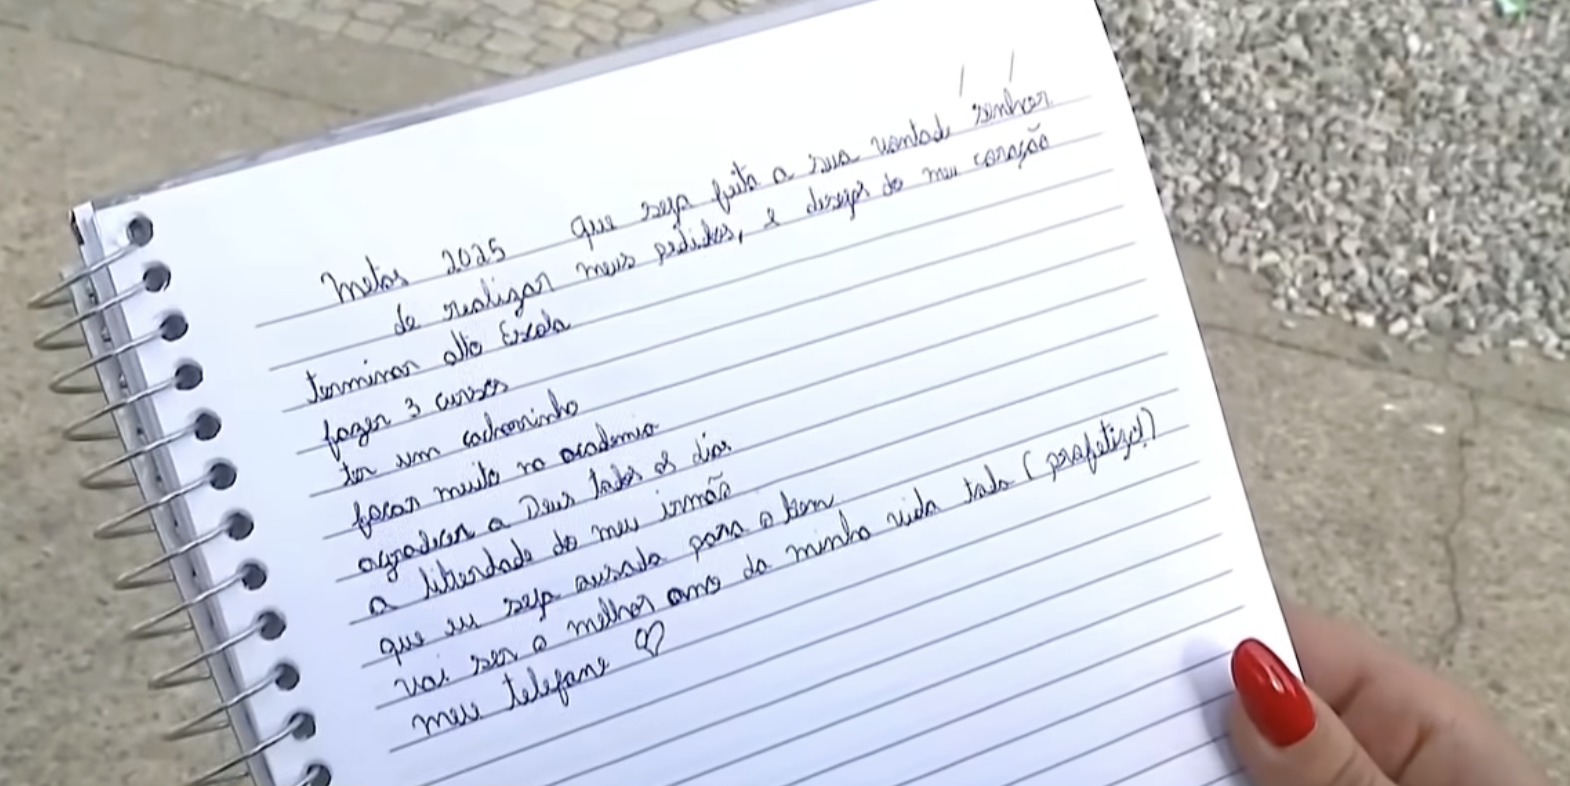 / /
Metas 2025 que seja feita a sua vontade senhor
de realizar meus pedidos, e desejos do meu coração
terminar alto Escola
fazer 3 cursos
ter um cachorrinho
focar muito na academia
agradecer a Deus todos os dias
a liberdade do meu irmão
que eu seja ousada para o bem
vai ser o melhor ano da minha vida toda (profetizo!)
meu telefone ♡